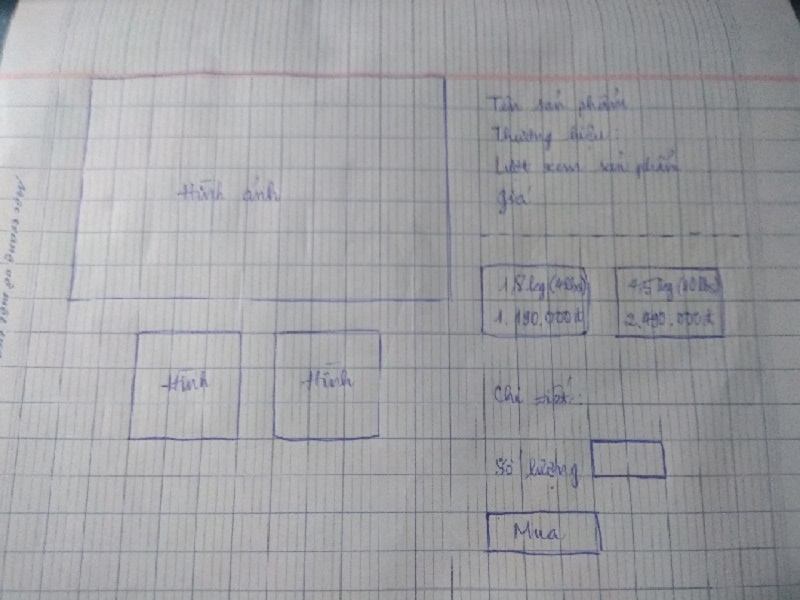 Hình ảnh
Hình
Hình
Tên sản phẩm
Thương hiệu:
Lượt xem sản phẩm
Giá
1.8 kg (4 lbs)
1.190.000đ
4.5 kg (10 lbs)
2.490.000đ
Chi tiết:
Số lượng
Mua